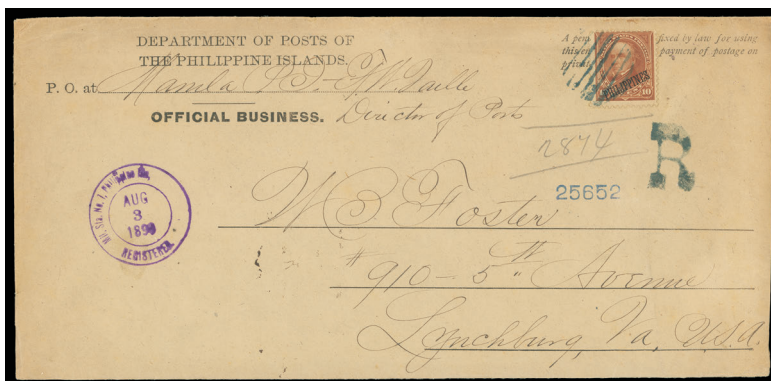 DEPARTMENT OF POSTS OF
THE PHILIPPINE ISLANDS.
P. O. at Manila P.I. - 
OFFICIAL BUSINESS. Director of Posts
A pen fixed by law for using
this en payment of postage on
privat
PHILIPPINES
10
2874
R
25652
AUG
3
1899
REGISTERED.
W S Foster
# 910 - 5th Avenue
Lynchburg, Va, U.S.A.